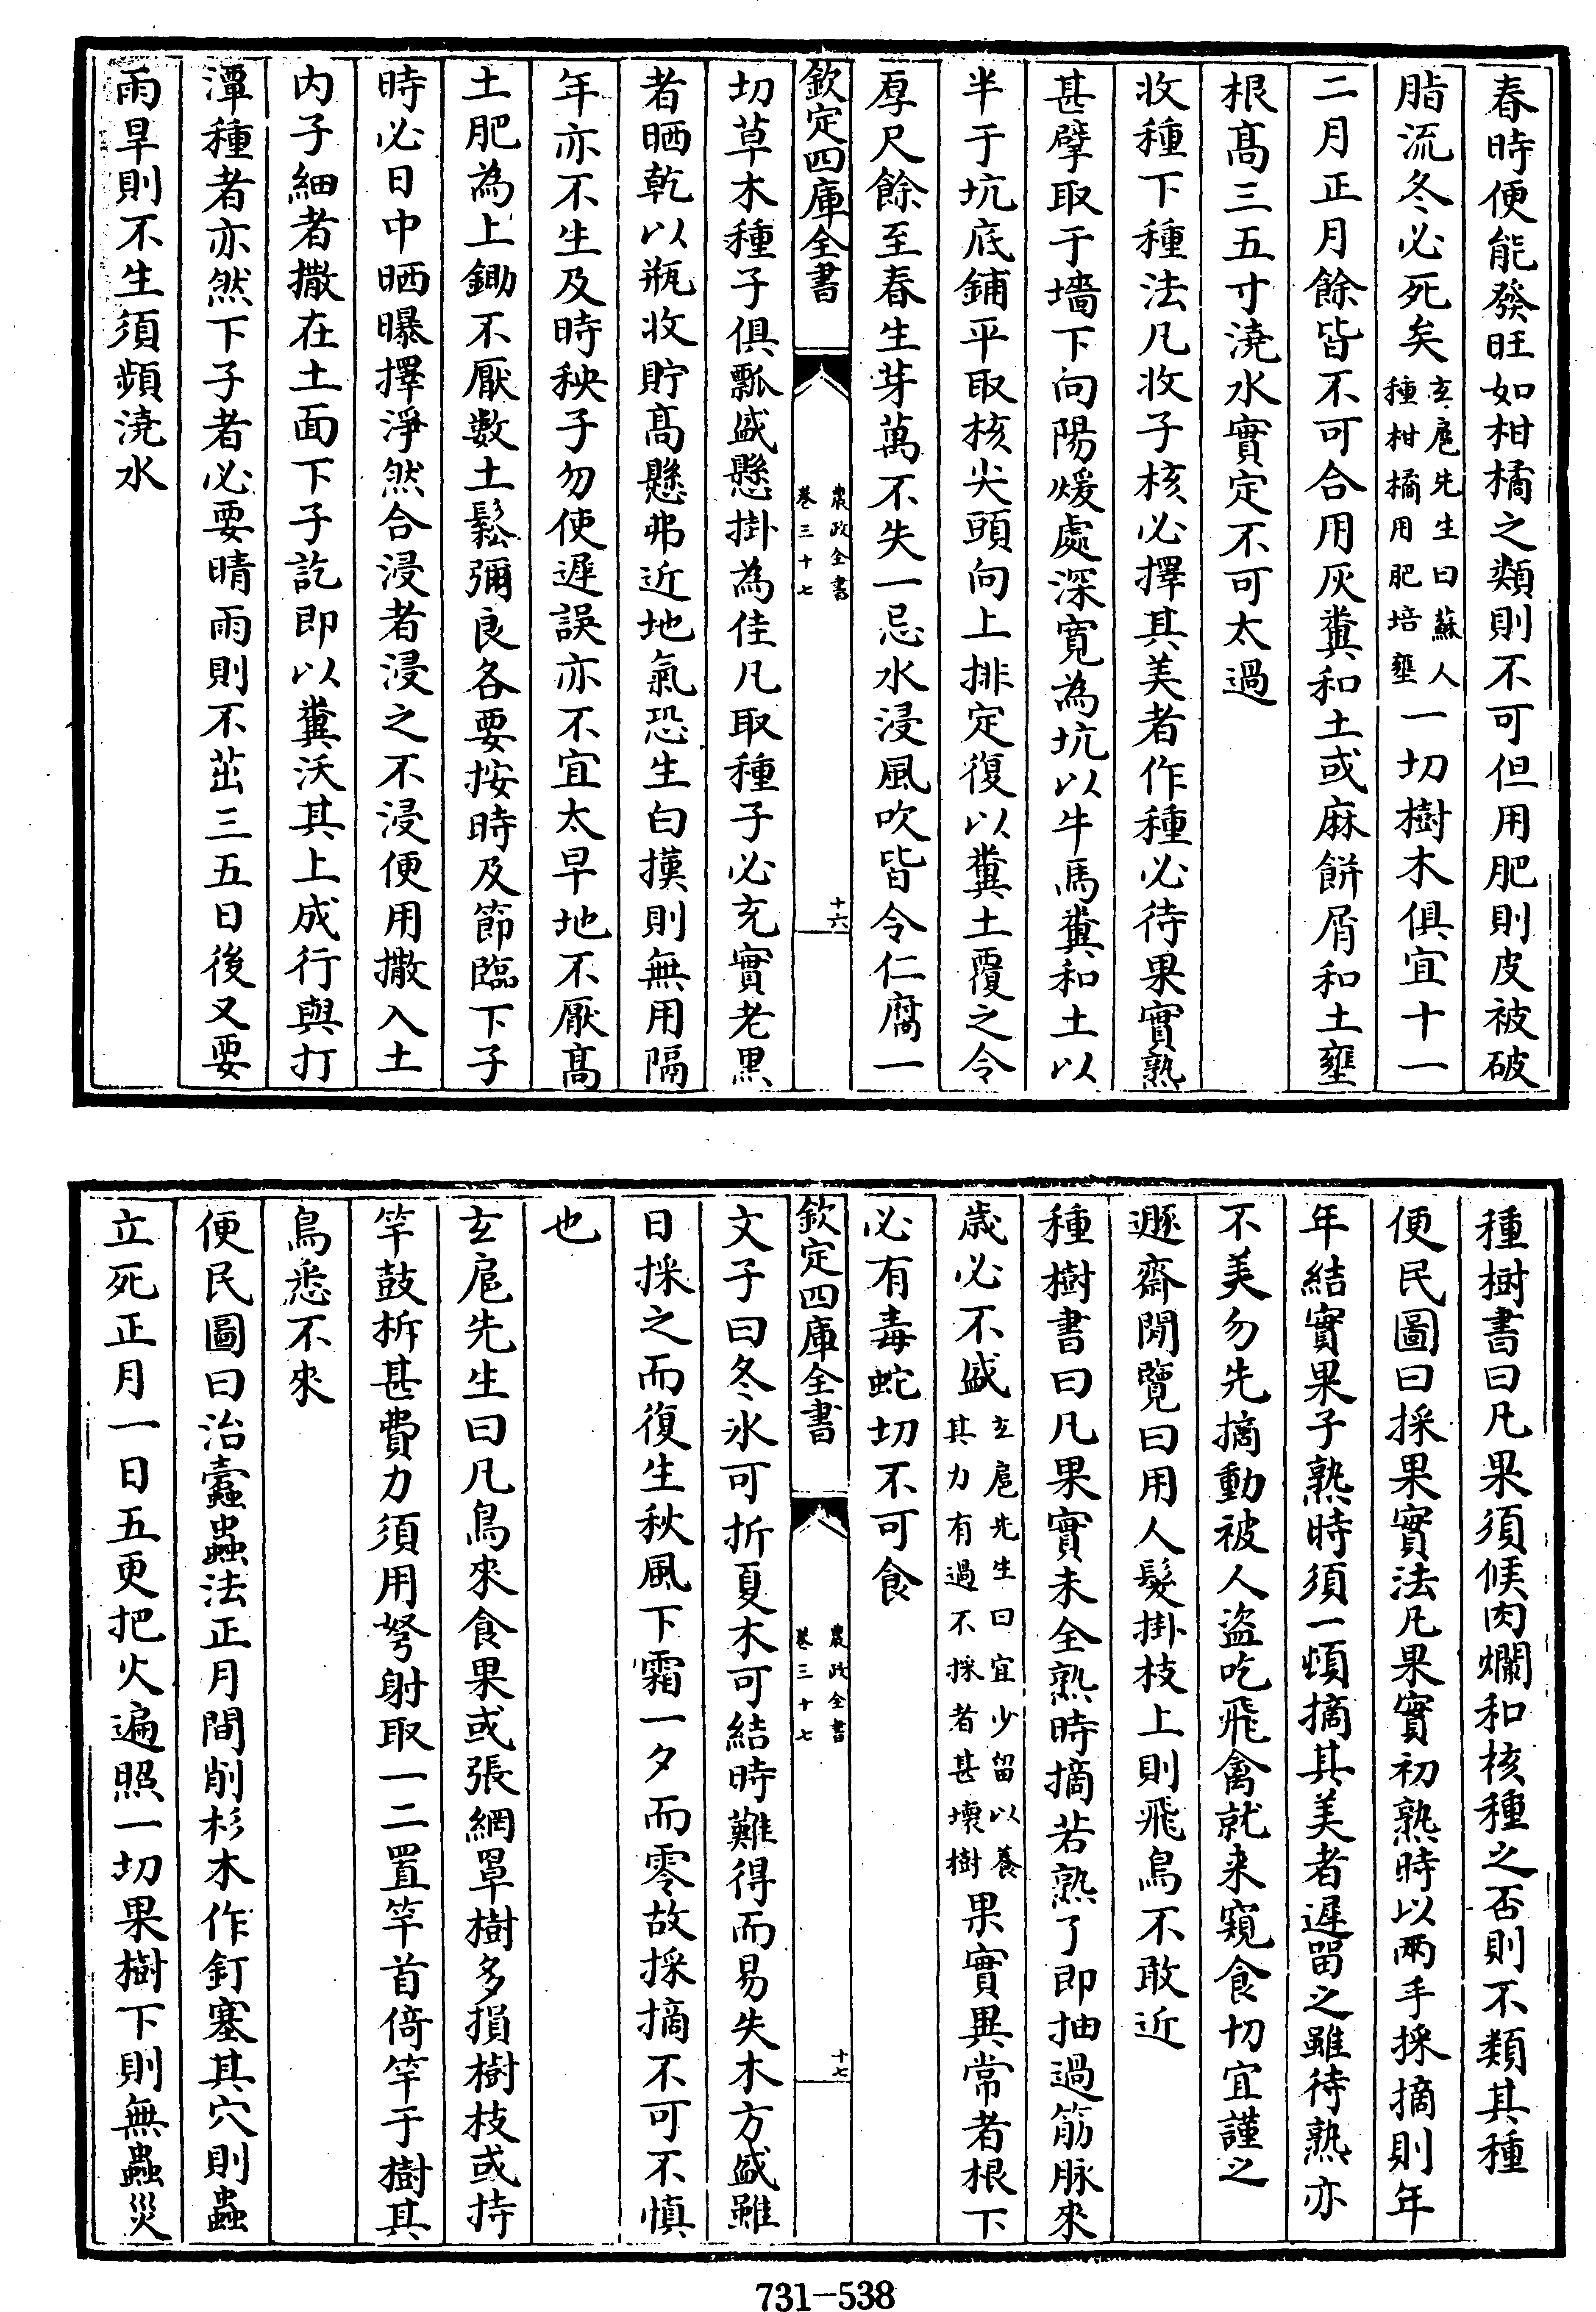 春時便能發旺如柑橘之類則不可但用肥則皮被破
脂流冬必死矣玄扈先生曰蘇人種柑橘用肥培壅一切樹木俱宜十一
二月正月餘皆不可合用灰糞和土或麻餅屑和土壅
根髙三五寸澆水實定不可太過
收種下種法凡收子核必擇其美者作種必待果實熟
甚擘取于墻下向陽煖處深寛為坑以牛馬糞和土以
半于坑底鋪平取核尖頭向上排定復以糞土覆之令
厚尺餘至春生芽萬不失一忌水浸風吹皆令仁腐一
欽定四庫全書
農政全書
卷三十七
十六
切草木種子俱瓢盛懸掛為佳凡取種子必充實老黒
者晒乾以瓶收貯髙懸弗近地氣恐生白撲則無用隔
年亦不生及時秧子勿使遲誤亦不宜太早地不厭髙
土肥為上鋤不厭數土鬆彌良各要按時及節臨下子
時必日中晒曝擇淨然合浸者浸之不浸便用撒入土
内子細者撒在土面下子訖即以糞沃其上成行與打
潭種者亦然下子者必要晴雨則不茁三五日後又要
雨旱則不生須頻澆水
種樹書曰凡果須候肉爛和核種之否則不類其種
便民圖曰採果實法凡果實初熟時以兩手採摘則年
年結實果子熟時須一頓摘其美者遲留之雖待熟亦
不美勿先摘動被人盜吃飛禽就来窺食切宜謹之
遯齋閒覽曰用人髮掛枝上則飛鳥不敢近
種樹書曰凡果實未全熟時摘若熟了即抽過筋脉來
歳必不盛玄扈先生曰宜少留以養其力有過不採者甚壞樹果實異常者根下
必有毒蛇切不可食
欽定四庫全書
農政全書
卷三十七
十七
文子曰冬氷可折夏木可結時難得而易失木方盛雖
日採之而復生秋風下霜一夕而零故採摘不可不慎
也
玄扈先生曰凡鳥來食果或張網罩樹多損樹枝或持
竿鼓柝甚費力須用弩射取一二置竿首倚竿于樹其
鳥悉不來
便民圖曰治蠧蟲法正月間削杉木作釘塞其穴則蟲
立死正月一日五更把火遍照一切果樹下則無蟲災
731-538